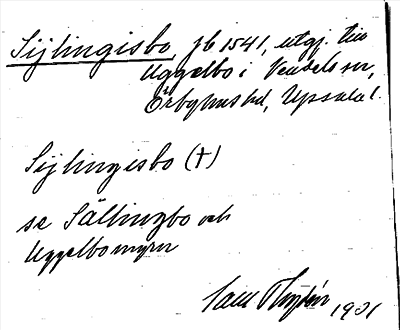 Sijlingisbo jb 1541, utgj. till
Uggelbo i Vendels sn,
Örbyhus hd, Upsala l.
Sijlingisbo (†)
se Sällingbo och
Uggelbomyra
1901